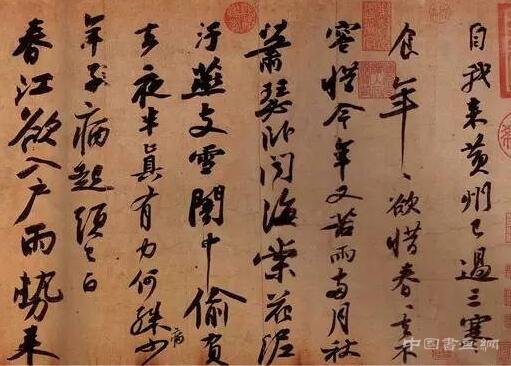 自我来黄州已過三寒
食年〻欲惜春〻去不
容惜今年又苦雨兩月秋
蕭瑟卧聞海棠花泥
汙燕支雪闇中偷負
去夜半真有力何殊病少
年子病起頭已白
春江欲入戶雨勢来
中国書画網